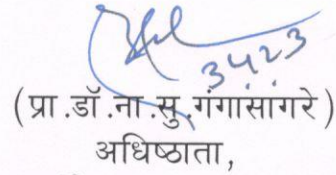 3423
(प्रा.डॉ.ना.सु.गंगासागरे)
अधिष्ठाता,